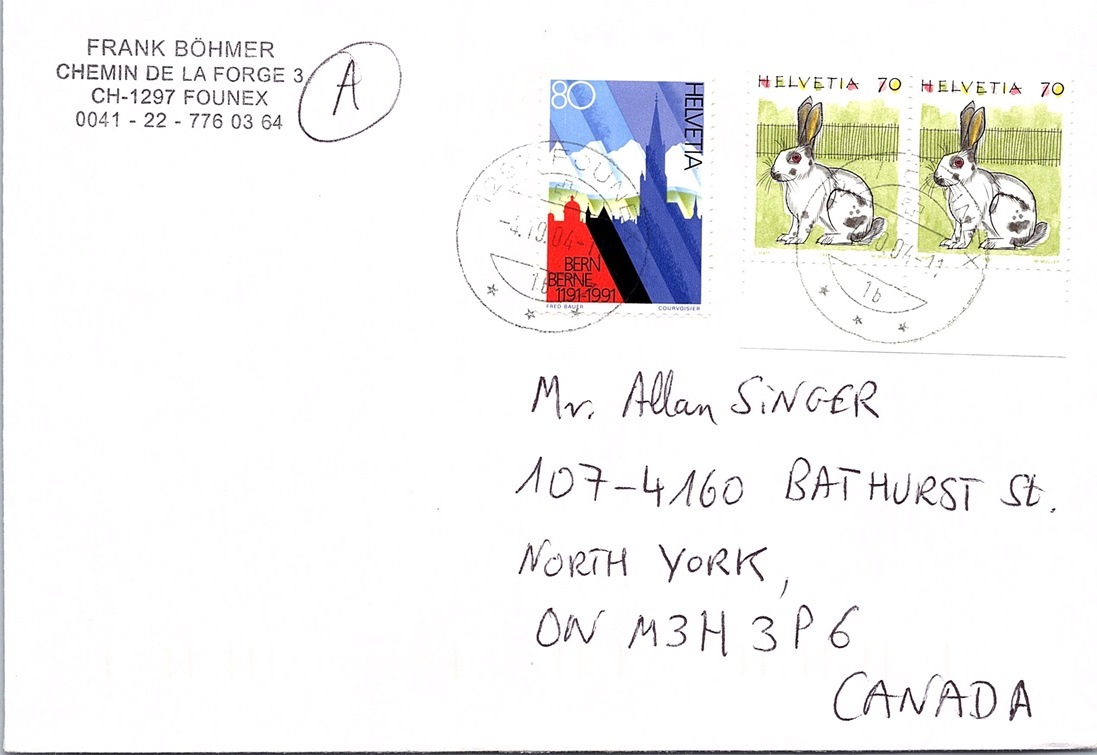 FRANK BÖHMER
CHEMIN DE LA FORGE 3
CH-1297 FOUNEX
0041 - 22 - 776 03 64
A
80
HELVETIA
BERN
BERNE
1191-1991
FRED BAUER COURVOISIER
HELVETIA 70
HELVETIA 70
-4.10.04-11
1b
.04-11
1b
Mr. Allan SiNGER
107-4160 BATHURST St.
NORTH YORK,
ON M3H 3P6
CANADA